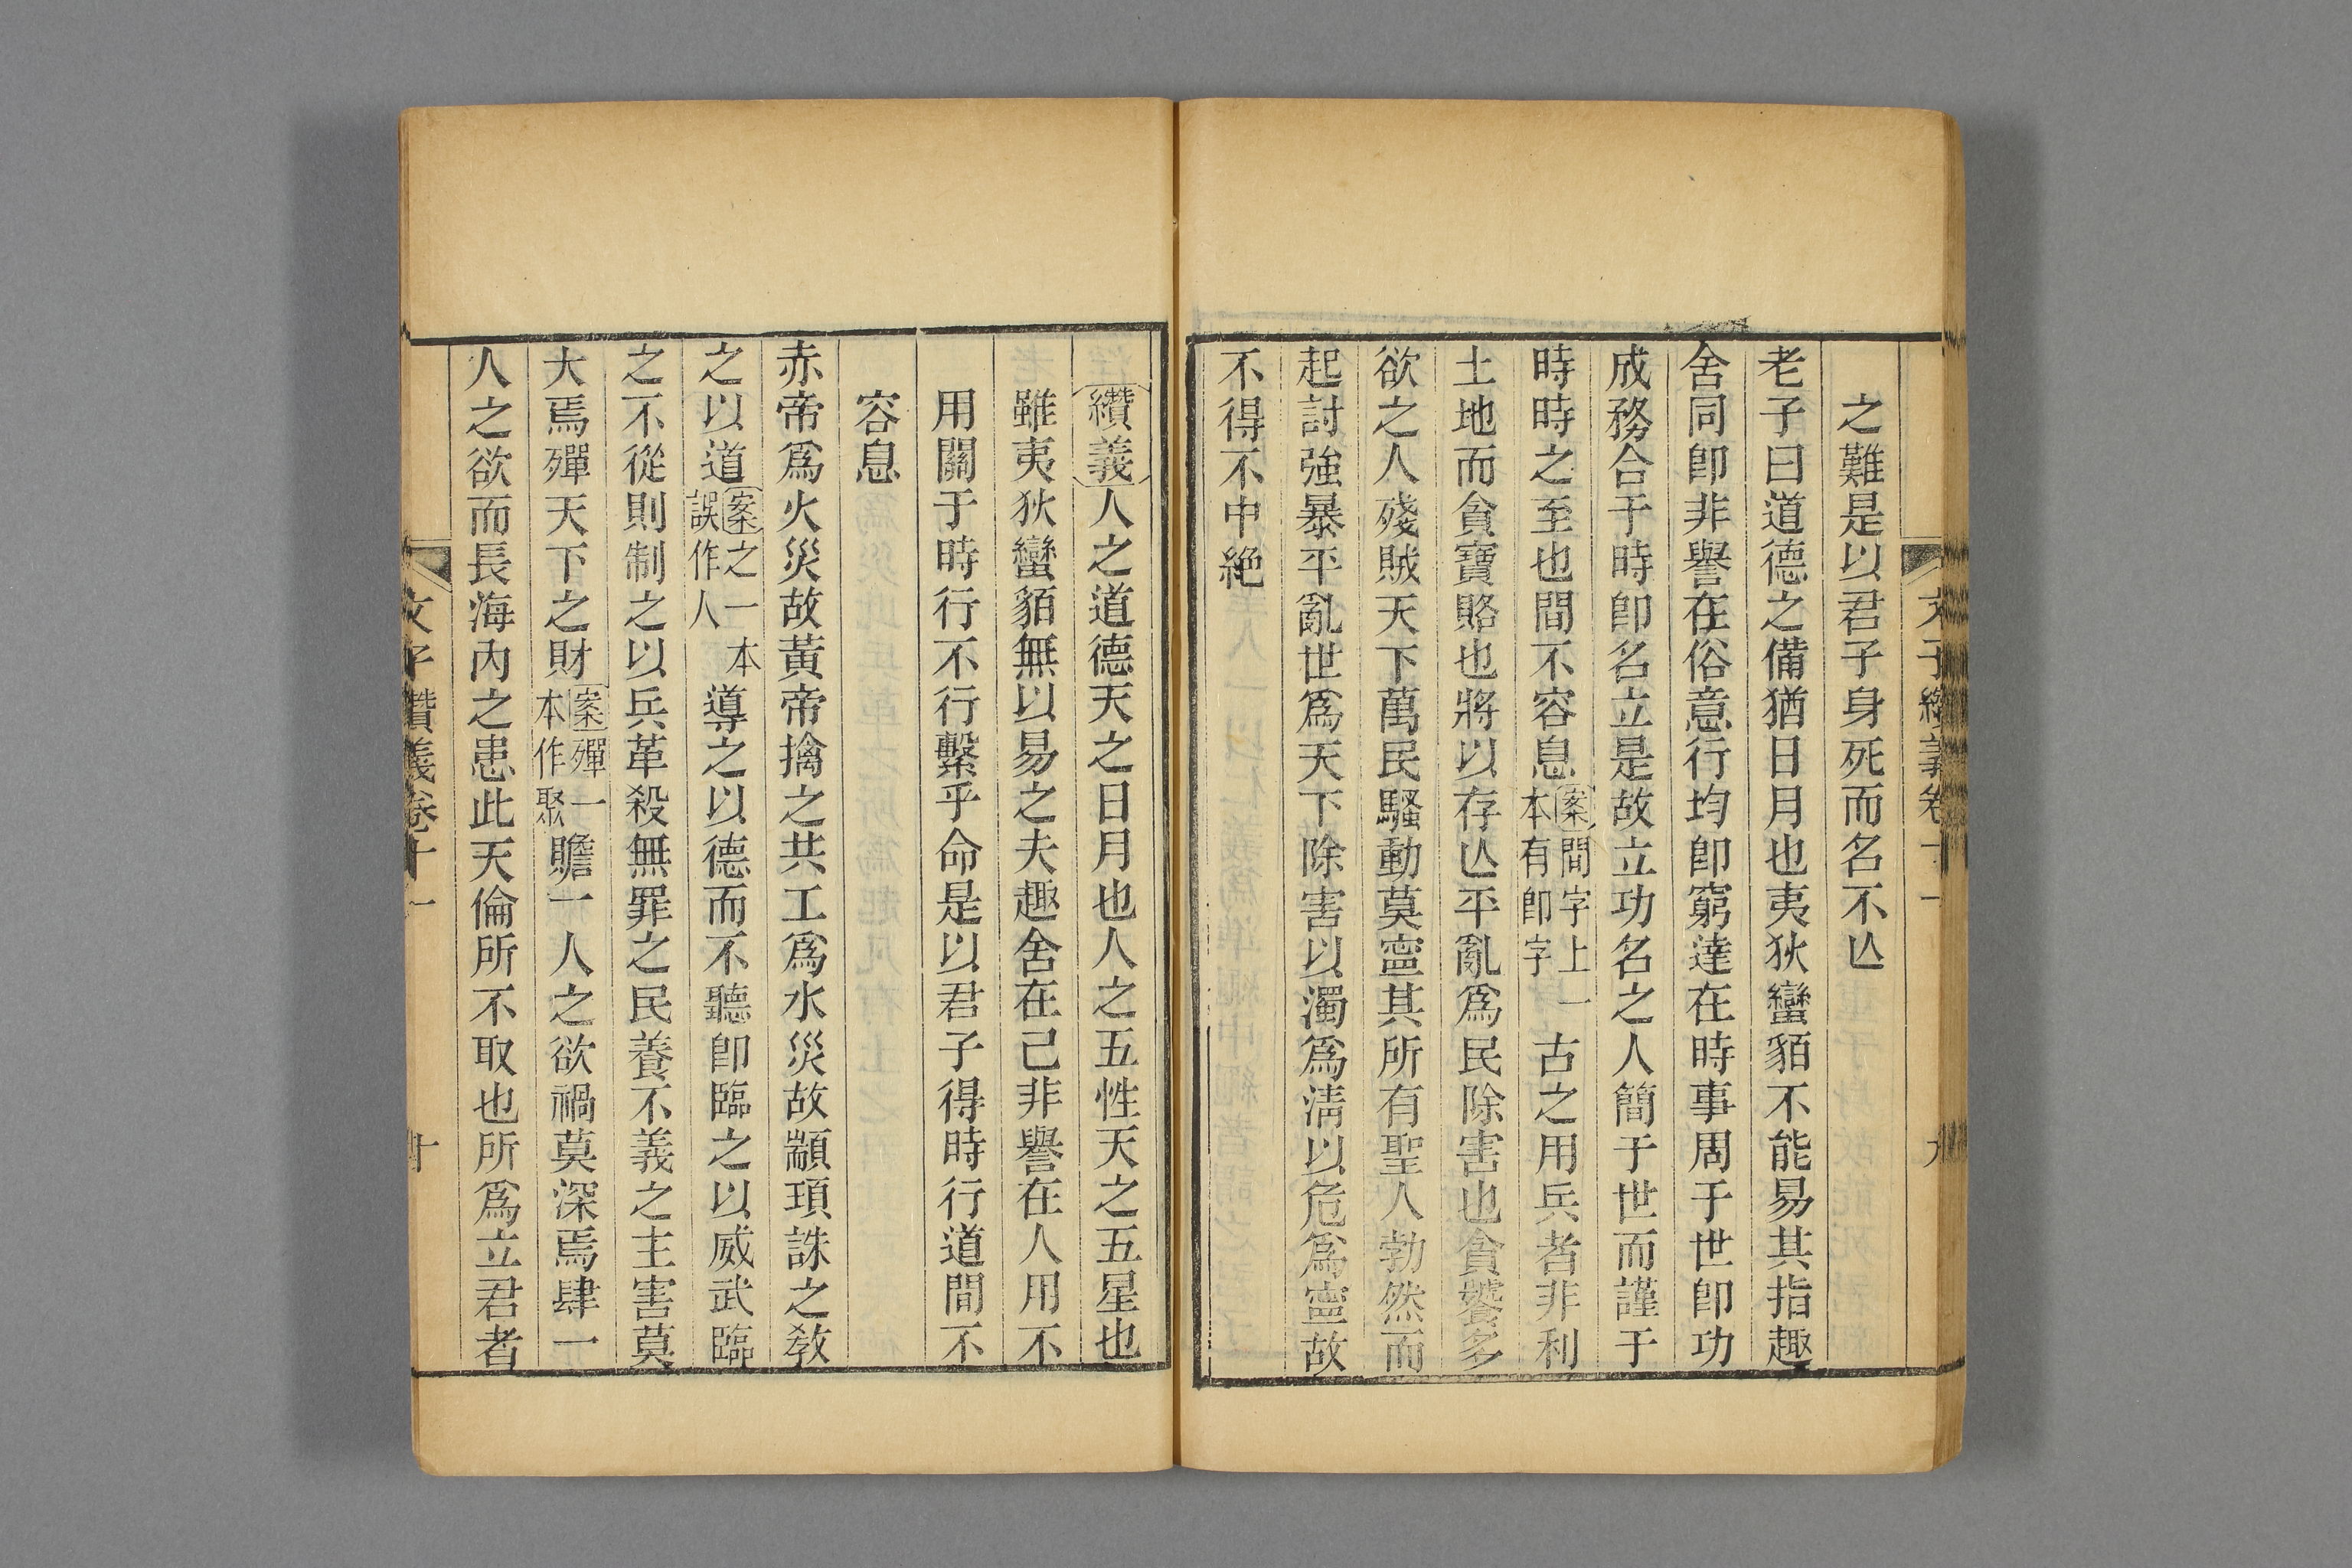 文子纘義卷十一 九
之難是以君子身死而名不亾
老子曰道德之備猶日月也夷狄蠻貊不能易其指趣
舍同卽非譽在俗意行均卽窮達在時事周于世卽功
成務合于時卽名立是故立功名之人簡于世而謹于
時時之至也間不容息案間字上一本有卽字古之用兵者非利
土地而貪寶賂也將以存亾平亂爲民除害也貪饕多
欲之人殘賊天下萬民騷動莫寧其所有聖人勃然而
起討強暴平亂世爲天下除害以濁爲淸以危爲寧故
不得不中絶
纘義人之道德天之日月也人之五性天之五星也
雖夷狄蠻貊無以易之夫趣舍在己非譽在人用不
用關于時行不行繫乎命是以君子得時行道間不
容息
赤帝爲火災故黃帝擒之共工爲水災故顓頊誅之敎
之以道案之一本誤作人導之以德而不聽卽臨之以威武臨
之不從則制之以兵革殺無罪之民養不義之主害莫
大焉殫天下之財案殫一本作聚贍一人之欲禍莫深焉肆一
人之欲而長海內之患此天倫所不取也所爲立君者
文子纘義卷十一 十